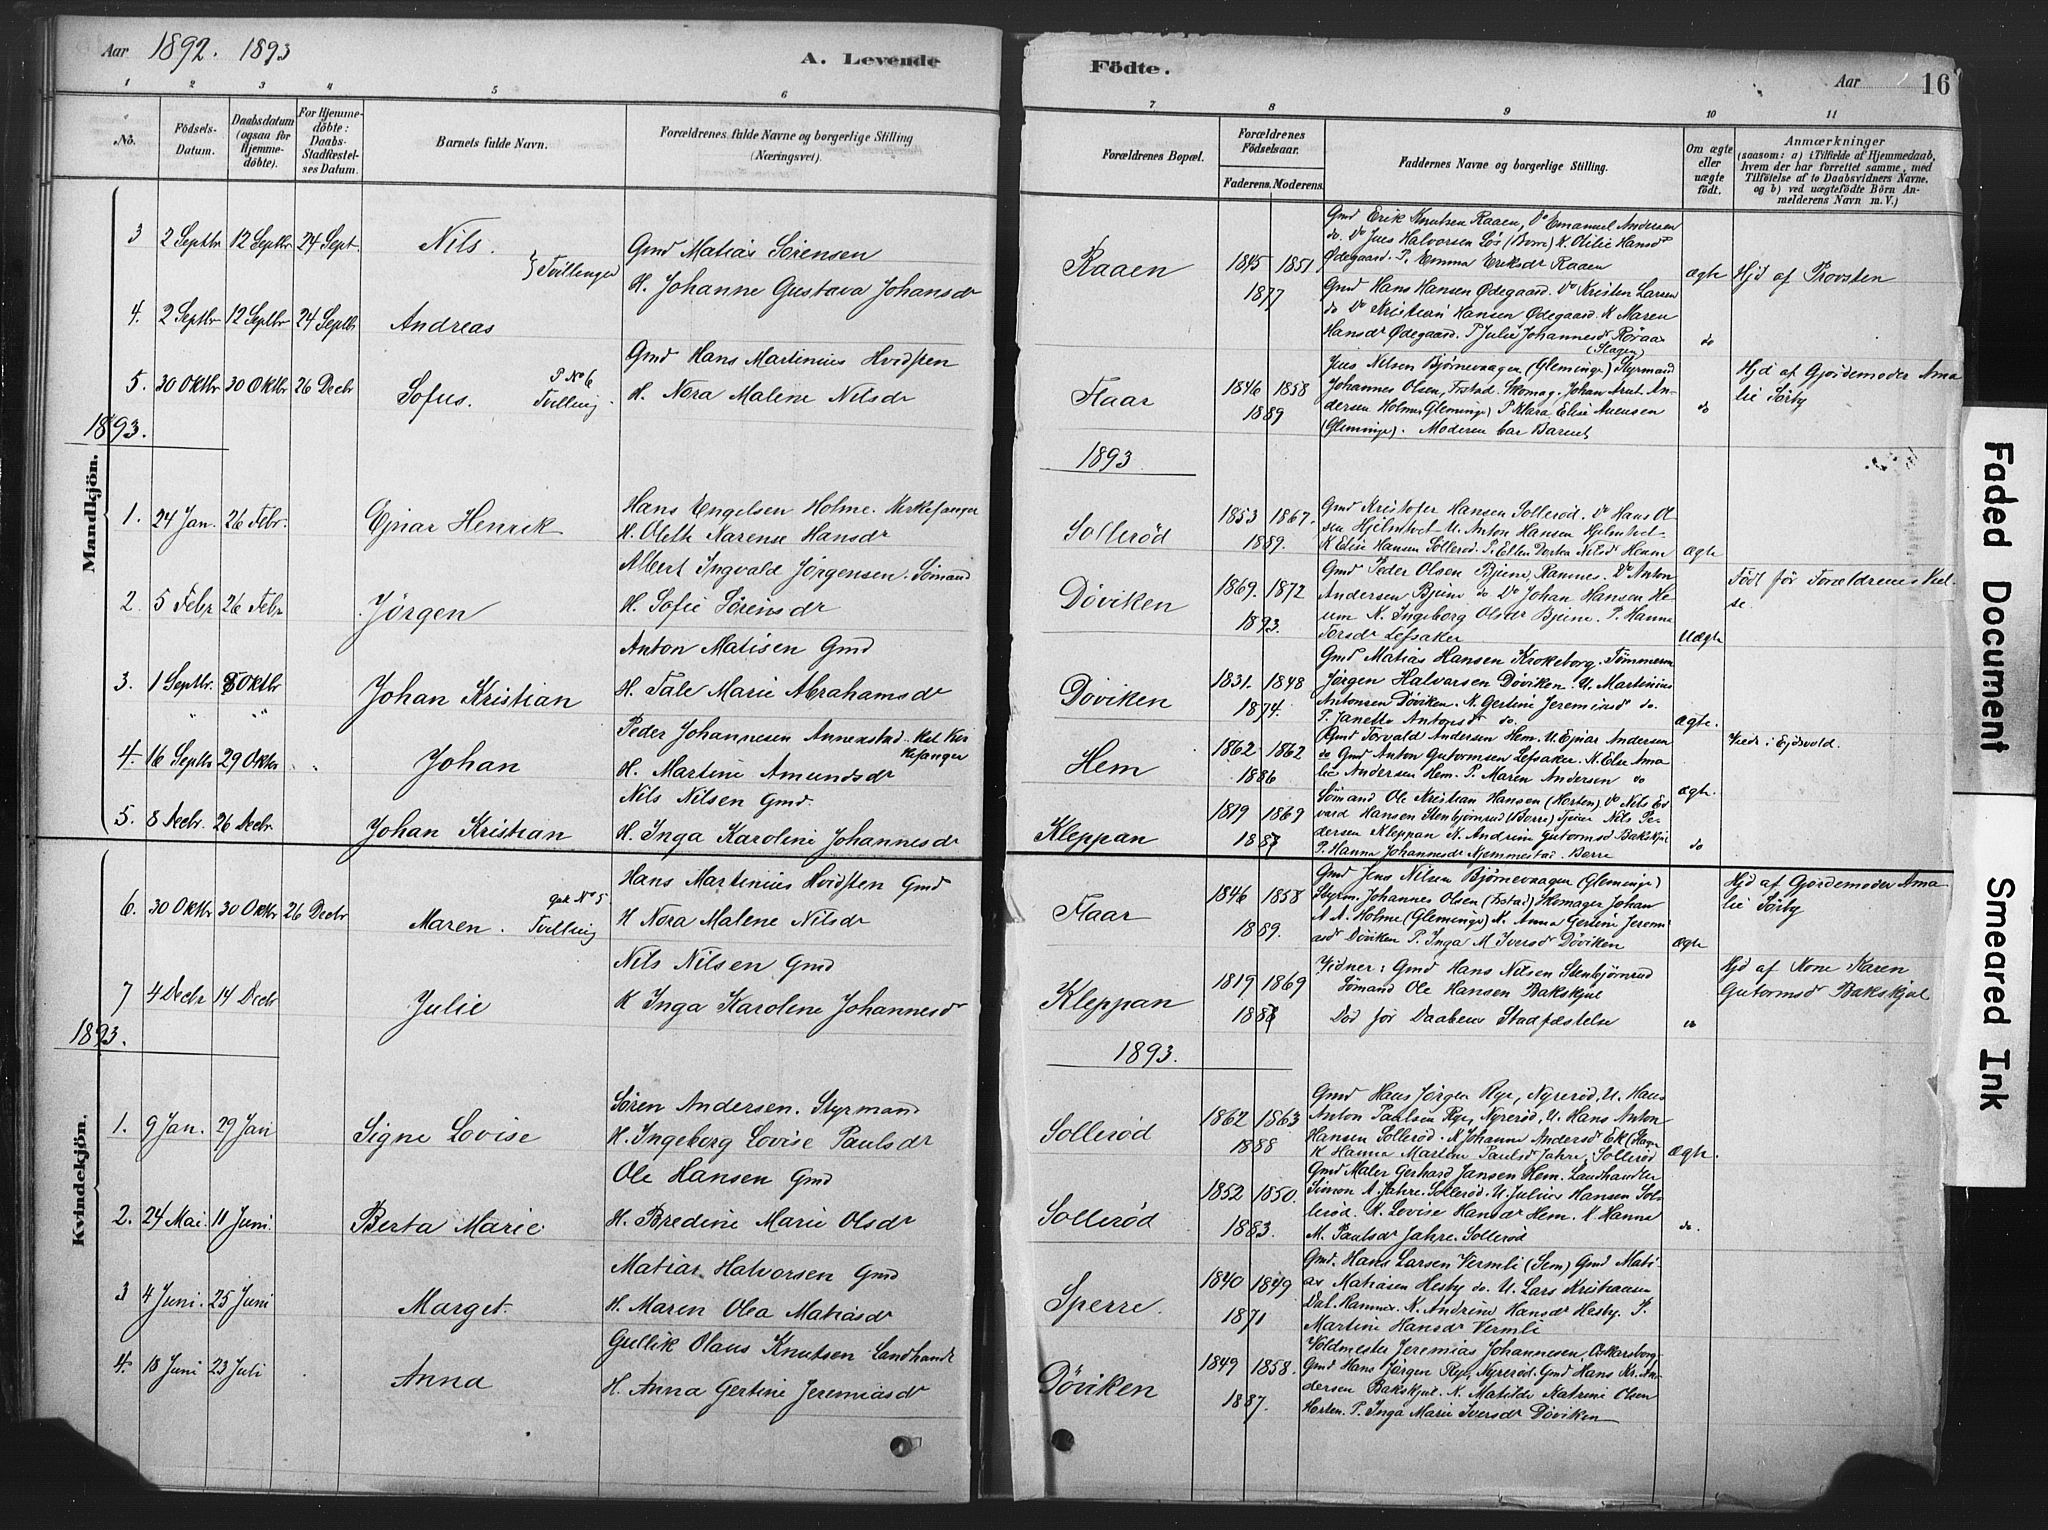 Aar 1892. 1893
A. Levende
Födte.
Aar 16
1 2 3 4 5 6 7 8 9 10 11
No.
Födsels-Datum.
Daabsdatum (ogsaa for Hjemmedöbte).
For Hjemmedöbte: Daabs-Stadfæstelses Datum.
Barnets fulde Navn.
Forældrenes fulde Navne og borgerlige Stilling (Næringsvei).
Forældrenes Bopæl.
Forældrenes Födselsaar.
Faderens. Moderens.
Faddernes Navne og borgerlige Stilling.
Om ægte eller uægte födt.
Anmærkninger
(saasom: a) i Tilfælde af Hjemmedaab, hvem der har forrettet samme, med Tilföielse af to Daabsvidners Navne, og b) ved uægtefödte Börn Anmelderens Navn m. V.)
Mandkjön.
3 2 Septbr 12 Septbr 24 Sept. Nils. } Tvillinger
Gmd Matias Sörensen
H. Johanne Gustava Johansdr
Raaen 1845 1851
1877
Gmd Erik Knutsen Raaen, Do Emanuel Andersen
do. Do Jens Halvorsen Lös (Borre) K. Otilie Hansd
Ødegaard. P. Emma Eriksdr Raaen
ægte Hjd af Provsten
4. 2 Septbr 12 Septbr 24 Septbr Andreas
Gmd Hans Hansen Ødegaard. Do Kristen Larsen
do Do Kristian Hansen Ødegaard. K Maren
Hansdr Ødegaard. P Julie Johannesd Röraas
(Slagen)
do
5. 30 Oktbr 30 Oktbr 26 Decbr Sofus. P No 6 Tvilling
Gmd Hans Martinius Hvidsten
H. Nora Malene Nilsdr
Flaar 1846 1858
1889
Jens Nilsen Björnevaagen (Gleminge) Styrmand
Johannes Olsen, Frstad. Skomag. Johan Arnt Andersen Holme Gleminge) P Klara Elise Auensen
(Gleminge). Moderen bar Barnet
do
Hjd af Gjordemoder Amalie Sörby
1893.
1893
1. 24 Jan. 26 Febr. Ejnar Henrik
Hans Engelsen Holme. Kirkesanger
H. Oleth Karense Hansdr
Sollerød 1853 1867.
1889.
Gmd Kristofer Hansen Sollerød. Do Hans Olsen Hjelmtvet U. Anton Hansen Hjelmtvet
K Elise Hansen Sollerød. P. Ellen Dortea Nilsd Hem
Ægte
2. 5 Febr 26 Febr Jörgen
Albert Ingvald Jörgensen. Sömand
H. Sofie Sörensdr
Döviken 1869. 1872
1893.
Gmd Peder Olsen Bjune, Ramnes. Do Anton
Andersen Bjune do Do Johan Hansen Heum K. Ingeborg Olsdr Bjune. P. Hanna
Torsdr Lefsaker
Uægte
Född för Forældrenes Vielse.
3. 1 Septbr. 8 Oktbr Johan Kristian
Anton Matisen Gmd
H. Tale Marie Abrahamsdr
Döviken 1831. 1848
1874.
Gmd Matias Hansen Krokeborg. Tömmerm
Jörgen Halvorsen Döviken. U. Martinius
Antonsen Döviken. K. Gertine Jeremiasd do.
P. Janette Antonsd do.
Ægte.
4. 16 Septbr 29 Oktbr " Johan
Peder Johannesen Annexstad. Kirkesanger
H. Martine Amundsdr
Hem 1862 1862
1886
Gmd Torvald Andersen Hem. U. Ejnar Andersen
do Gmd Anton Gutormsen Lefsaker. K. Else Amalie Andersen Hem. P. Maren Andersen do
Ægte.
Viede i Ejdsvold.
5. 8 Decbr. 26 Decbr Johan Kristian
Nils Nilsen Gmd.
H. Inga Karoline Johannesdr
Kleppan 1819 1869
1887
Sömand Ole Kristian Hansen (Horten) Do Nils Edvard Hansen Stenbjörnrud (Borre) Tjener Nils Pedersen Kleppan K. Andrine Gutormsd Bakskjul
P. Hanna Johannesdr Njemmestad. Borre
do
Kvindekjön.
6. 30 Oktbr 30 Oktbr 26 Decbr Maren. gok No 5 Tvilling
Hans Martinius Hvidsten Gmd
H Nora Malene Nilsdr
Flaar 1846 1858
1889.
Gmd Jens Nilsen Björnevaagen (Gleminge)
Styrm. Johannes Olsen (Frstad) Skomager Johan
A. A. Holme (Gleminge) K. Anna Gertine Jeremiasd Döviken P. Inga M. Iversdr Döviken
Ægte
Hjd af Gjordemoder Amalie Sörby
7 4 Decbr 14 Decbr Julie
Nils Nilsen Gmd
K Inga Karolene Johannesdr
Kleppan 1819 1869
1887
Vidner: Gmd Hans Nilsen Stenbjörnrud
Sömand Ole Hansen Bakskjul
Död för Daabens Stadfæstelse
do
Hjd af Kone Karen
Gutormsd Bakskjul
1893.
1893.
1. 9 Jan. 29 Jan Signe Lovise
Sören Andersen. Styrmand
H. Ingeborg Lovise Paulsdr
Sollerød 1862 1863
1888
Gmd Hans Jörgen Rye, Nyrerød, U. Hans
Anton Paulsen Rye, Nyrerød, U. Hans Anton
Hansen Sollerød. K Johanne Andersd Ek (Slagen
K Hanna Martine Paulsdr Jahre, Sollerød
Ægte.
2. 24 Mai 11 Juni. Berta Marie
Ole Hansen Gmd
H. Bredine Marie Olsdr
Sollerød 1852 1850.
1883.
Gmd Maler Gerhard Jansen Hem. Landhandler
Simon A. Jahre. Sollerød. U. Julius Hansen Sollerød. K. Lovise Hansdr Hem. K Hanna
M. Paulsdr Jahre. Sollerød
do.
3 4 Juni. 25 Juni Marget.
Matias Halvorsen Gmd
H. Maren Olea Matiasdr
Sperre. 1840 1849
1871
Gmd. Hans Larsen Vermli (Sem) Gmd Matias Matiasen Hesby do. U. Lars Kristiansen
Dal. Ramnes. K. Andrine Hansdr Hesby. P.
Martine Hansdr Vermli
4. 18 Juni 23 Juli Anna
Gullik Olaus Knutsen Landhandl
H. Anna Gertine Jeremiasdr
Döviken 1849 1858.
1887.
Voldmester Jeremias Johannesen, Oskarsborg.
Gmd Hans Jörgen Rye, Nyrerød. Gmd Hans Kr. Andersen Bakskjul. K. Matilde Katrine Olsen
Horten. P. Inga Marie Iversdr Döviken
Faded Document
Smeared Ink